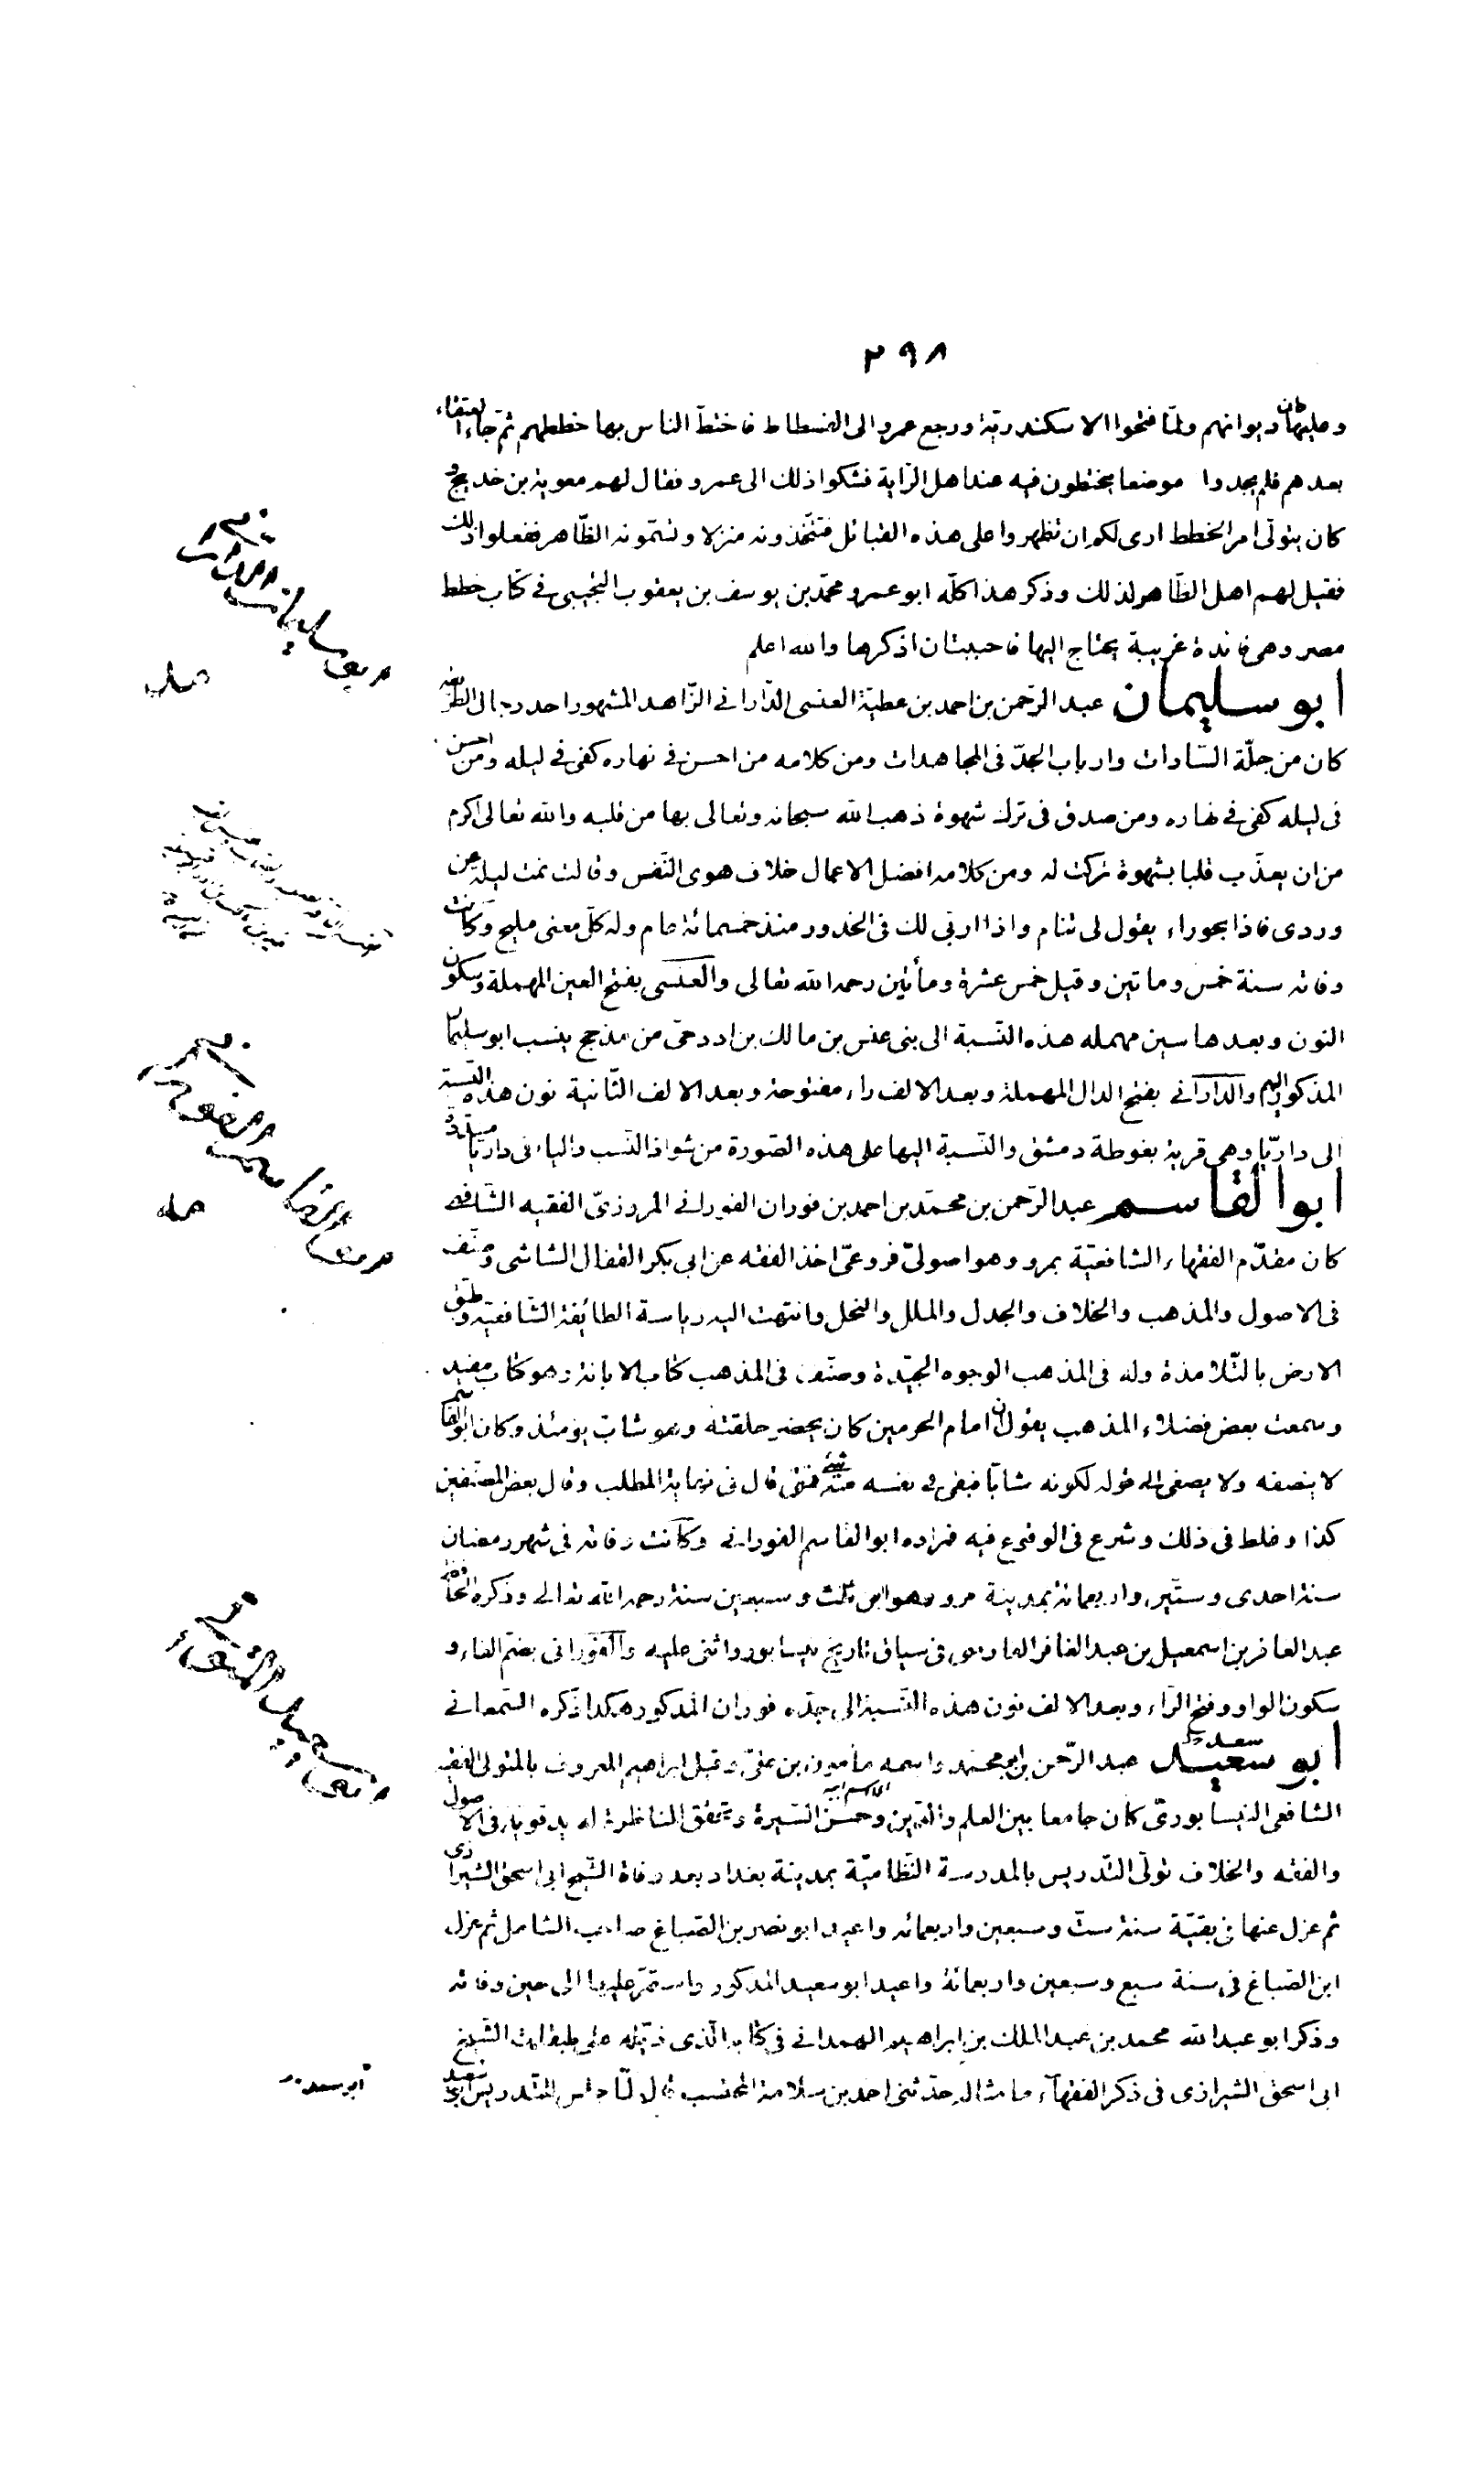 ٢٩٨
وعليها كان ديوانهم ولمّا فتحوا الاسكندريّة ورجع عمرو الى الفسطاط فاختطّ الناس بها خططهم ثمّ جاء العتقاء
بعدهم فلم يجدوا موضعا يختطون فيه عند اهل الرّاية فشكوا ذلك الى عمرو فقال لهم معوية بن خديج و
كان يتولّى امر الخطط ارى لكم ان تظهروا على هذه القبائل فتتّخذونه منزلا وتسمّونه الظّاهر ففعلوا ذلك
فقيل لهم اهل الظّاهر لذلك وذكر هذا كلّه ابو عمرو محمّد بن يوسف بن يعقوب التجيبى فى كتاب خطط
مصر وهى فائدة غريبة يحتاج اليها فاحببت ان اذكرها والله اعلم
ابو سليمان عبد الرّحمن بن احمد بن عطيّة العنسى الدّارانى الزّاهد المشهور احد رجال الطريقة
كان من جلّة السّادات وارباب الجدّ فى المجاهدات ومن كلامه من احسن فى نهاره كفى فى ليله ومن احسن
فى ليله كفى فى نهاره ومن صدق فى ترك شهوة ذهب الله سبحانه وتعالى بها من قلبه والله تعالى اكرم
من ان يعذّب قلبا بشهوة تركت له ومن كلامه افضل الاعمال خلاف هوى النّفس وقالت نمت ليلة عن
وردى فاذا بحوراء يقول لى تنام واذا اربّى لك فى الخدور منذ خمسمائة عام وله كلّ معنى مليح وكانت
وفاته سنة خمس وماتين وقيل خمس عشرة ومأتين رحمه الله تعالى والعنسى بفتح العين المهملة وسكون
النون وبعدها سين مهمله هذه النّسبة الى بنى عنس بن مالك بن ادد حىّ من مذحج ينسب ابو سليمان
المذكور اليهم والدّارانى بفتح الدال المهملة وبعد الالف راء مفتوحة وبعد الالف الثّانية نون هذه النّسبة
الى داريّا وهى قرية بغوطة دمشق والنّسبة اليها على هذه الصّورة من شواذ النّسب والياء فى داريّا مشدّدة
ابو القاسم عبد الرّحمن بن محمّد بن احمد بن فوران الفورانى المروزىّ الفقيه الشّافعى
كان مقدّم الفقهاء الشافعيّة بمرو وهو اصولىّ فروعىّ اخذ الفقه عن ابى بكر القفال الشاشى وصنّف
فى الاصول والمذهب والخلاف والجدل والملل والنحل وانتهت اليه رياسة الطائفة الشّافعيّة وطبّق
الارض بالتّلامذة وله فى المذهب الوجوه الجيّدة وصنّف فى المذهب كتاب الابانة وهو كتاب مفيد
وسمعت بعض فضلاء المذهب يقول ان امام الحرمين كان يحضر حلقته وهو شابّ يومئذ وكان ابو القاسم
لا ينصفه ولا يصغى الى قوله لكونه شابّا فبقى فى نفسه منه شئ فمتى قال فى نهاية المطلب وقال بعض المصنّفين
كذا وغلط فى ذلك وشرع فى الوقوع فيه فمراده ابو القاسم الفورانى وكانت وفاته فى شهر رمضان
سنة احدى وستّين واربعمائة بمدينة مرو وهو ابن ثلث وسبعين سنة رحمه الله تعالى وذكره الحافظ
عبد الغافر بن اسمعيل بن عبد الغافر الفارسى فى سياق تاريخ نيسابور واثنى عليه والفورانى بضمّ الفاء و
سكون الواو وفتح الرّاء وبعد الالف نون هذه النّسبة الى جدّه فوران المذكور هكذا ذكره السّمعانى
ابو سعيد سعد عبد الرّحمن بن ابى محمّد واسمه مأمون بن علىّ وقيل ابراهيم المعروف بالمتولى الفقيه
الشافعى النيسابورىّ كان جامعا بين العلم والدّين وحسن السّيرة وتحقّق المناظرة له يد قوية فى الاصول
والفقه والخلاف تولّى التّدريس بالمدرسة النّظاميّة بمدينة بغداد بعد وفاة الشّيخ ابى اسحق الشيرازى
ثم عزل عنها فى بقيّة سنة ستّ وسبعين واربعمائه واعيد ابو نصر بن الصّباغ صاحب الشامل ثم عزل
ابن الصّباغ فى سنة سبع وسبعين واربعمائة واعيد ابو سعيد المذكور واستمرّ عليها الى حين وفاته
وذكر ابو عبد الله محمد بن عبد الملك بن ابراهيم الهمدانى فى كتابه الّذى ذيّله على طبقات الشّيخ
ابى اسحق الشيرازى فى ذكر الفقهآء ما مثاله حدّثنى احمد بن سلامة المحتسب قال لمّا جلس للتّدريس ابو سعيد
ابو سعد